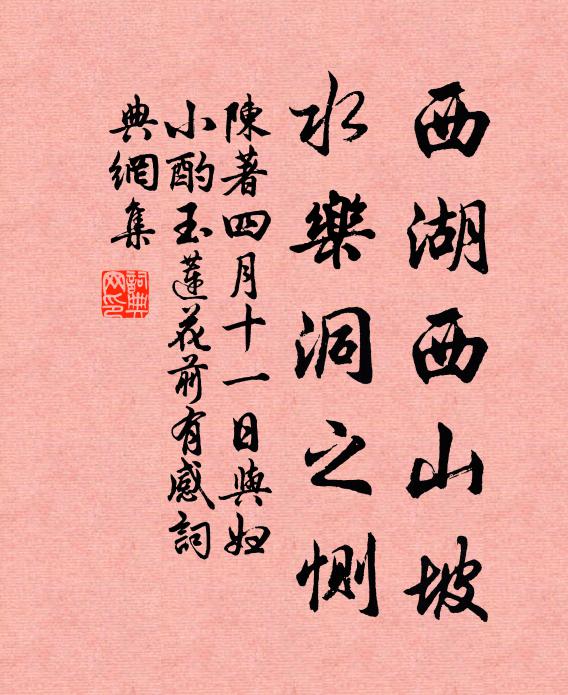 西湖西山坡
水樂洞之惻
陳著四月十一日與妞
小酌玉蓮花前有感詞
典網集
詞典网印